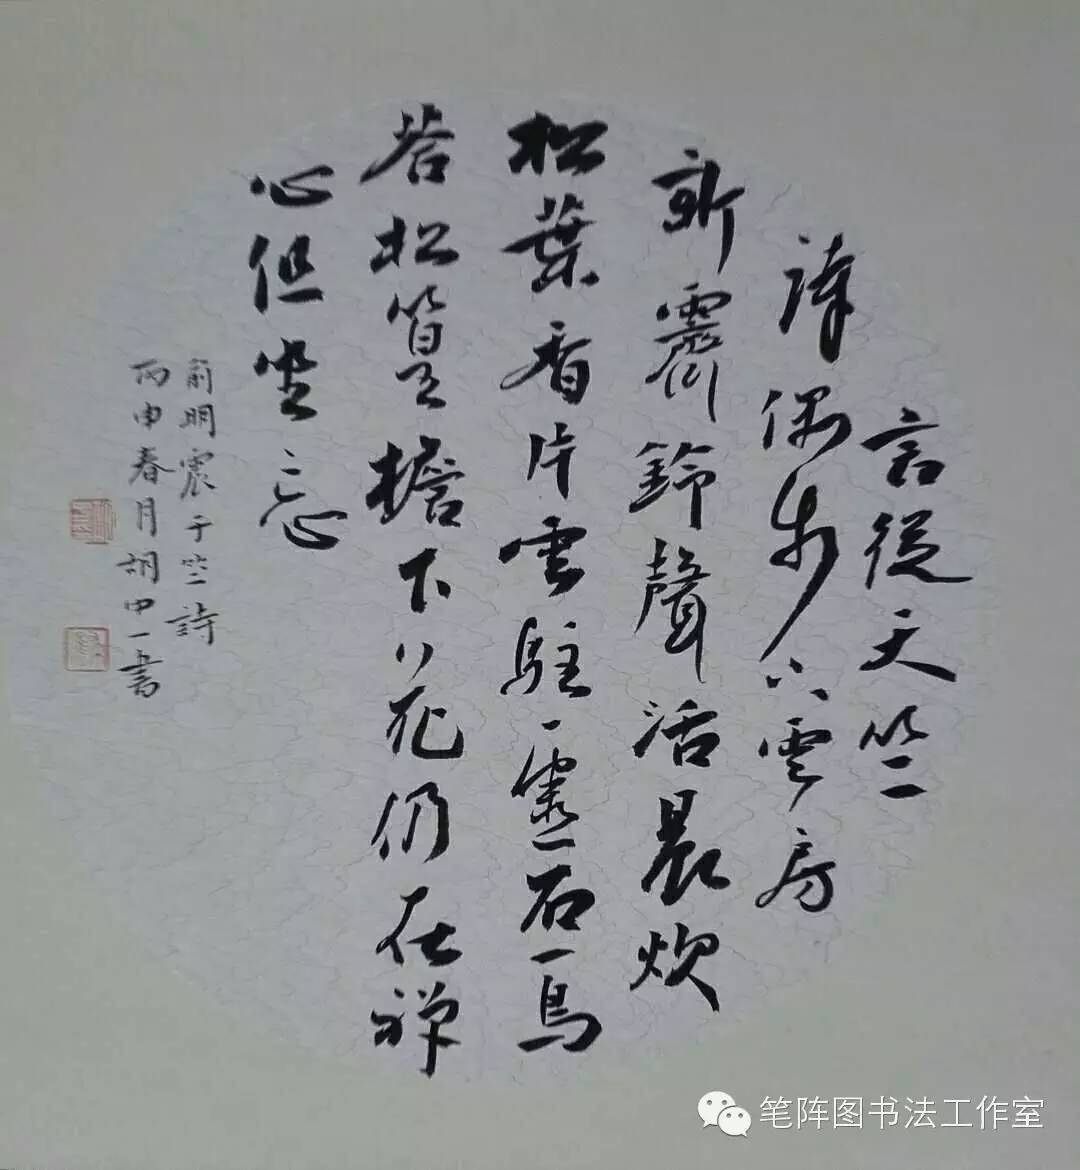 言從天竺
譯偶步雲房
新霽鈴聲活晨炊
松葉香片雲駐靈石一鳥
松篁檐下花仍在禪
心但坐忘
俞明震天竺詩
丙申春月胡中一書
笔阵图书法工作室